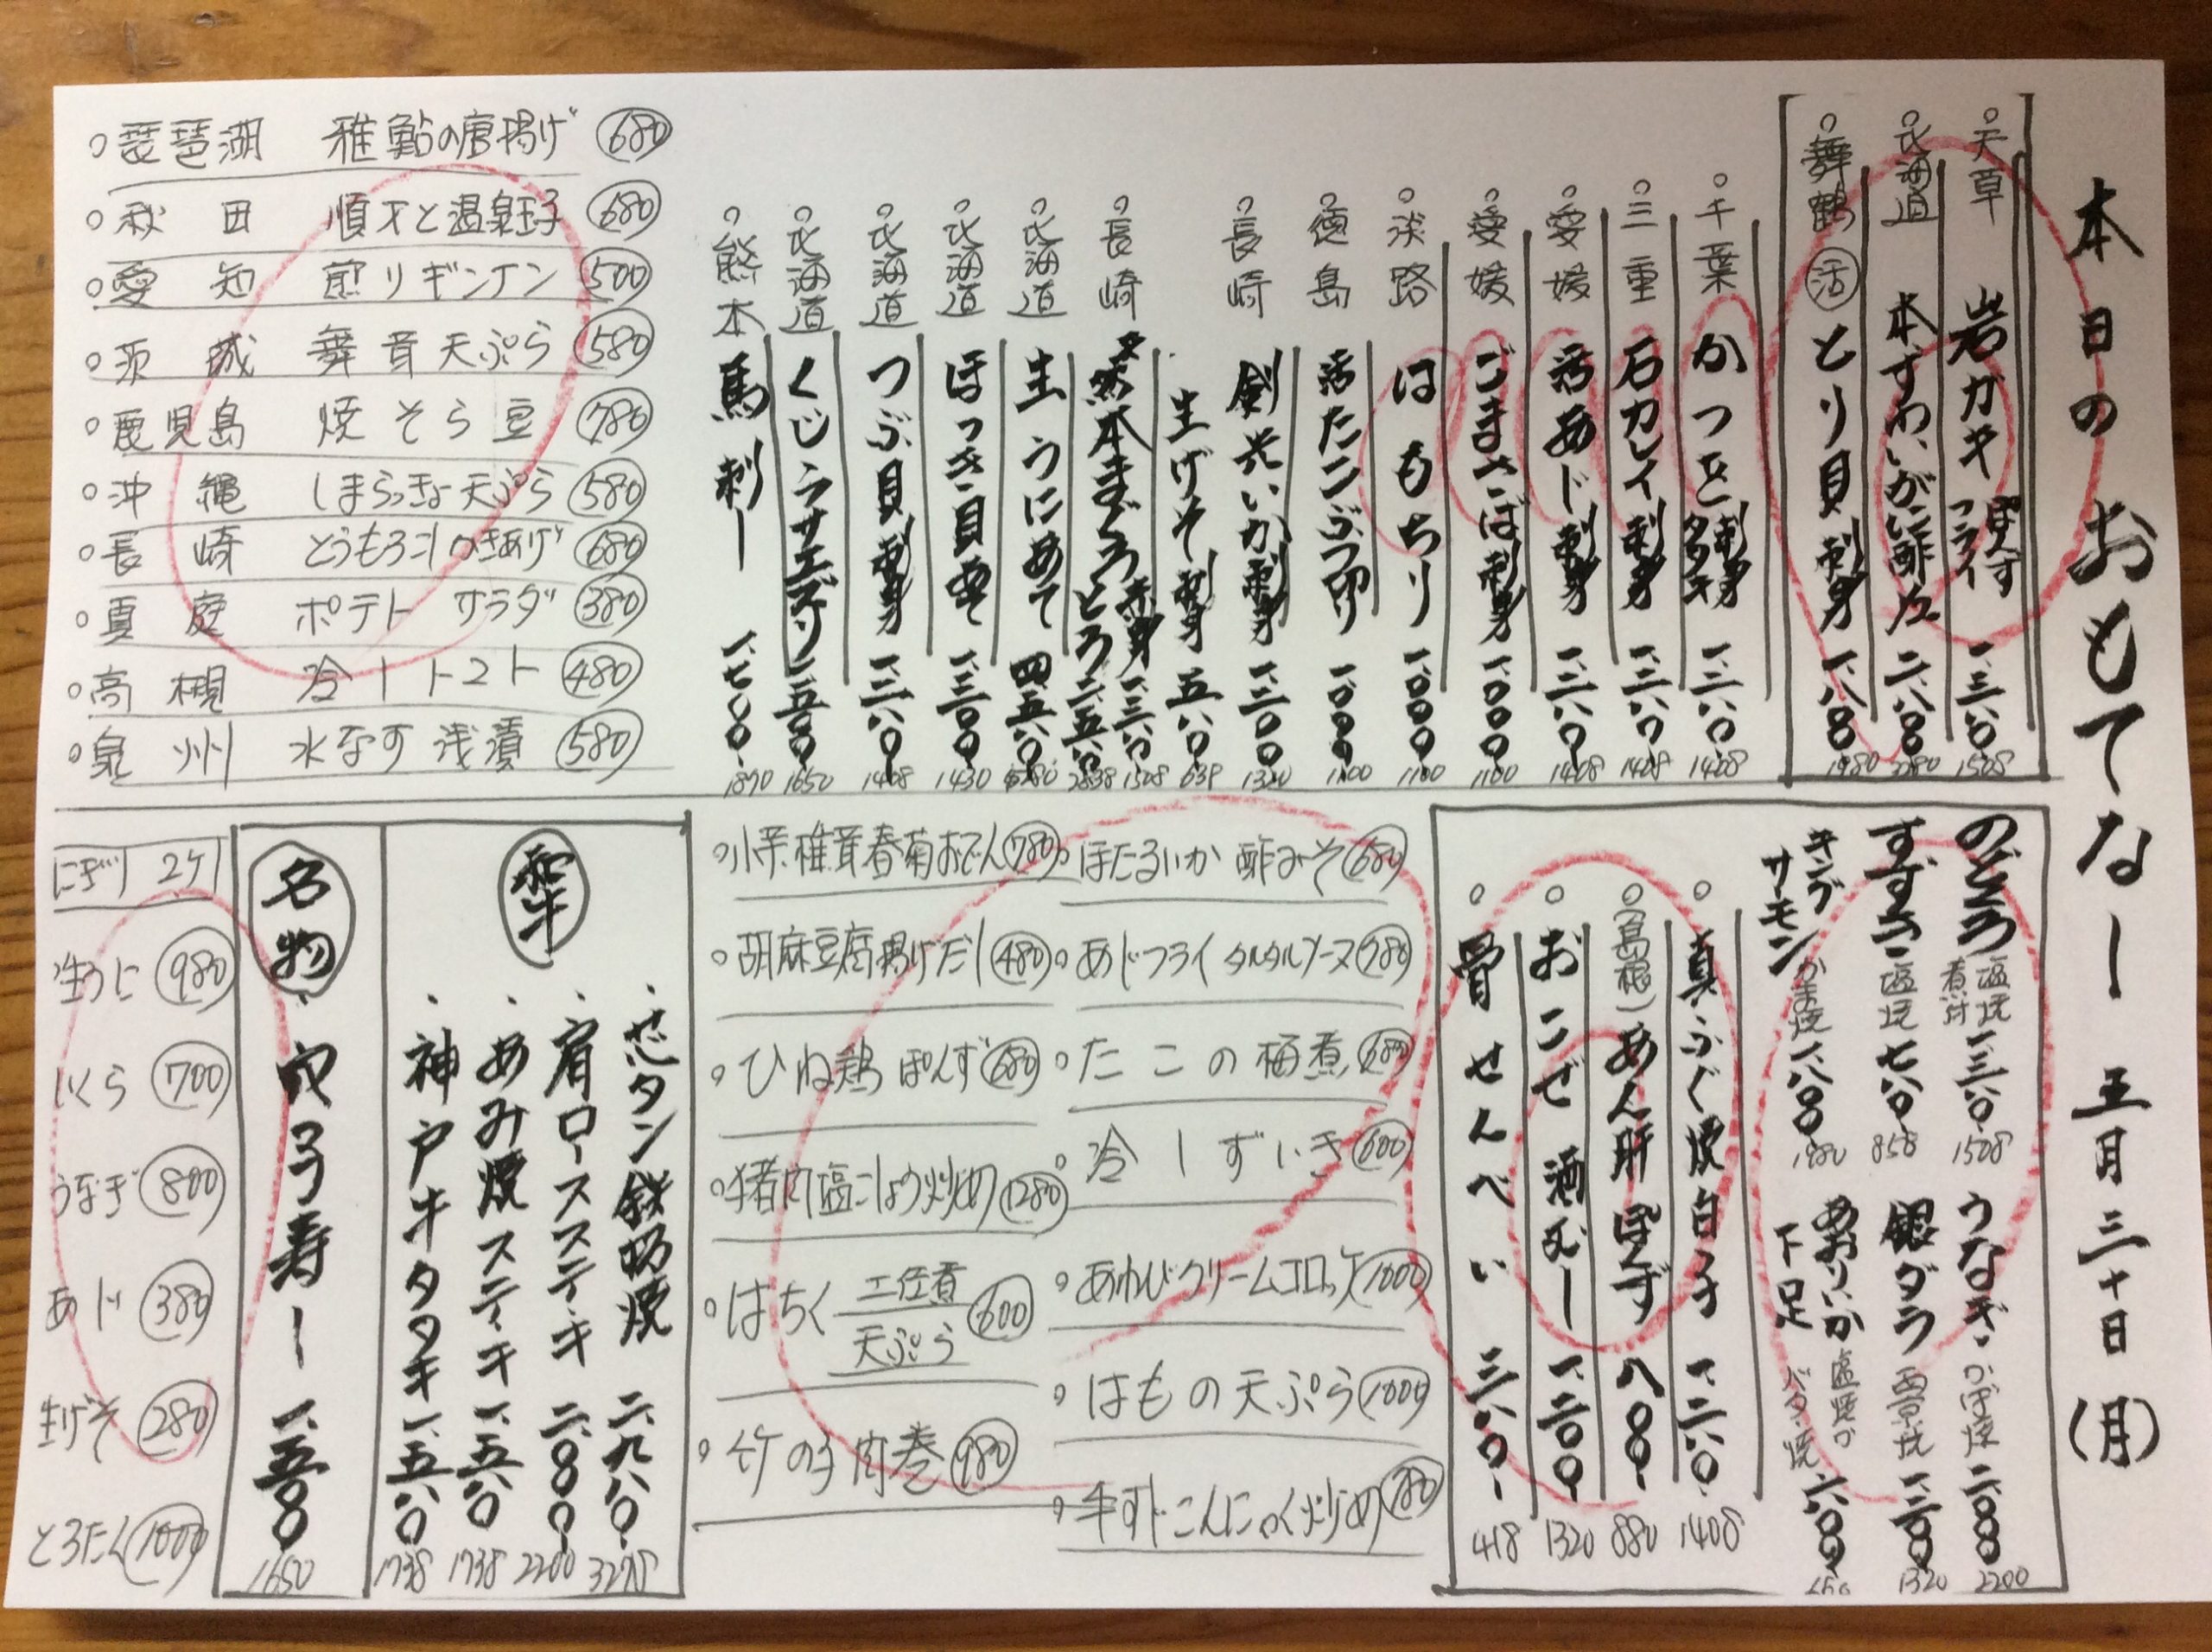 本日の おもてなし 五月三十日(月)
天草 岩ガキ ぽんず フライ 一、三八〇 1508
北海道 本ずわいがに酢 二、八〇〇 3080
舞鶴 活 とり貝 刺身 一、八〇〇 1980
千葉 かつを 刺身 タタキ 一、二八〇 1408
三重 石カレイ 刺身 一、二八〇 1408
愛媛 活あじ 刺身 一、二八〇 1408
愛媛 ごまさば 刺身 一、〇〇〇 1100
淡路 はもちり 一、〇〇〇 1100
徳島 活たこぶつ切り 一、〇〇〇 1100
長崎 剣先いか 刺身 一、二〇〇 1320
生げそ 刺身 五八〇 638
長崎 本まぐろ 赤身 一、三八〇 1508
とろ 二、五八〇 2838
北海道 生うにあて 四、八〇〇
北海道 ほっき貝 一、三〇〇 1430
北海道 つぶ貝 刺身 一、二八〇 1408
北海道 くじらサエズリ 一、五〇〇 1650
熊本 馬刺し 一、七〇〇 1870
琵琶湖 稚鮎の唐揚げ 680
秋田 順才と温泉玉子 680
愛知 煎りギンナン 500
茨城 舞茸天ぷら 580
鹿児島 焼そら豆 780
沖縄 しまらっきょ天ぷら 580
長崎 とうもろこしかきあげ 680
真庭 ポテトサラダ 380
高槻 冷しトマト 480
泉州 水なす浅漬 580
のどぐろ 塩焼 煮付 一、三八〇 1508
すずき 塩焼 七八〇 858
キングサーモン かま焼 一、八〇〇 1980
うなぎ かば焼 二、〇〇〇 2200
銀ダラ 西京焼 一、二〇〇 1320
あおりいか 下足 塩焼 バター焼 六〇〇
真ふぐ焼白子 一、二八〇 1408
(島根)あん肝ぽんず 八〇〇 880
おこぜ 酒むし 一、二〇〇 1320
骨せんべい 三八〇 418
ほたるいか 酢みそ 680
あじフライ タルタルソース 780
たこの梅煮 680
冷しずいき 600
あわびクリームコロッケ 1000
はもの天ぷら 1000
牛すじこんにゃく炒め 780
小芋椎茸春菊おでん 780
胡麻豆腐揚げだし 480
ひね鶏 ぽんず 680
猪肉塩こしょう炒め 1280
はちく 土佐煮 天ぷら 600
竹の子肉巻 980
芯タン鉄板焼 二、九八〇 3278
肩ロースステーキ 二、〇〇〇 2200
あみ焼ステーキ 一、五八〇 1738
神戸牛タタキ 一、五八〇 1738
名物 穴子寿し 一、五〇〇 1650
にぎり 2ケ
生うに 980
いくら 700
うなぎ 800
あじ 380
生げそ 280
とろたく 1000